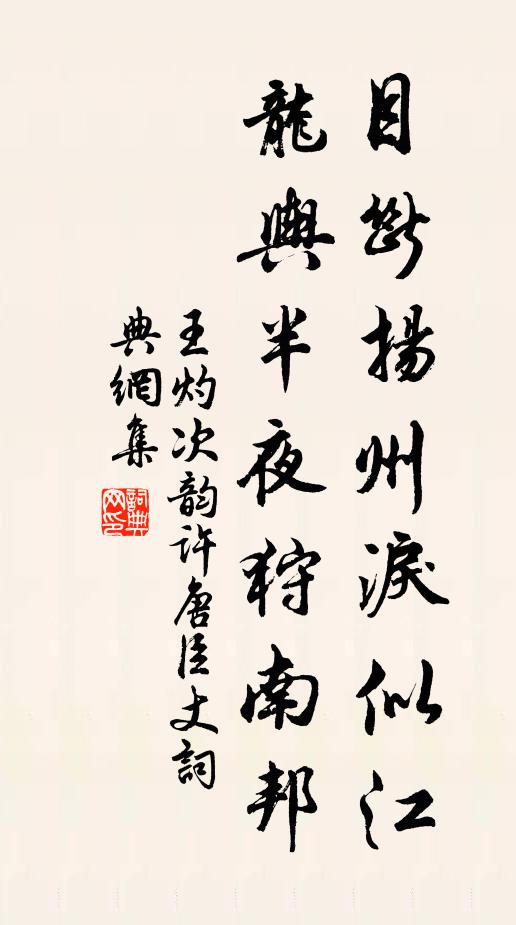 目斷揚州淚似江
龍輿半夜狩南邦
王灼次韵許唐臣丈詞
典網集
詞典網印